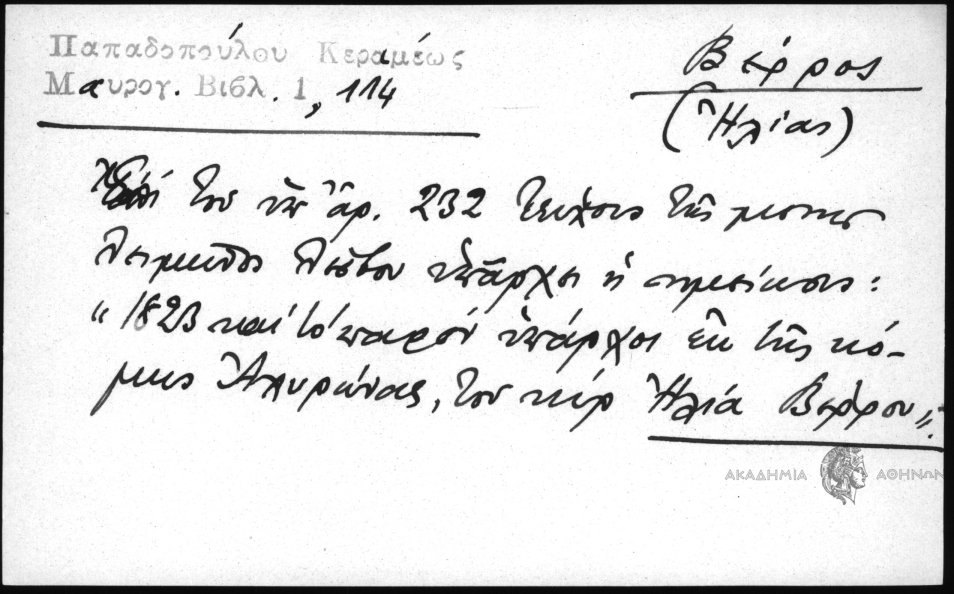 Παπαδοπούλου Κεραμέως
Μαυρογ. Βιβλ. 1, 114
Βέρρος
(Ἠλίας)
Ἐπὶ τοῦ ὑπ' ἀρ. 232 τεύχους τῆς μονῆς
Λειμῶνος Λέσβου ὑπάρχει ἡ σημείωσις:
“1823 καὶ τὸ παρὸν ὑπάρχει ἐκ τῆς κό-
μης Ἀχυρώνας, τοῦ κὺρ Ἠλία Βέρρου”.
ΑΚΑΔΗΜΙΑ ΑΘΗΝΩΝ